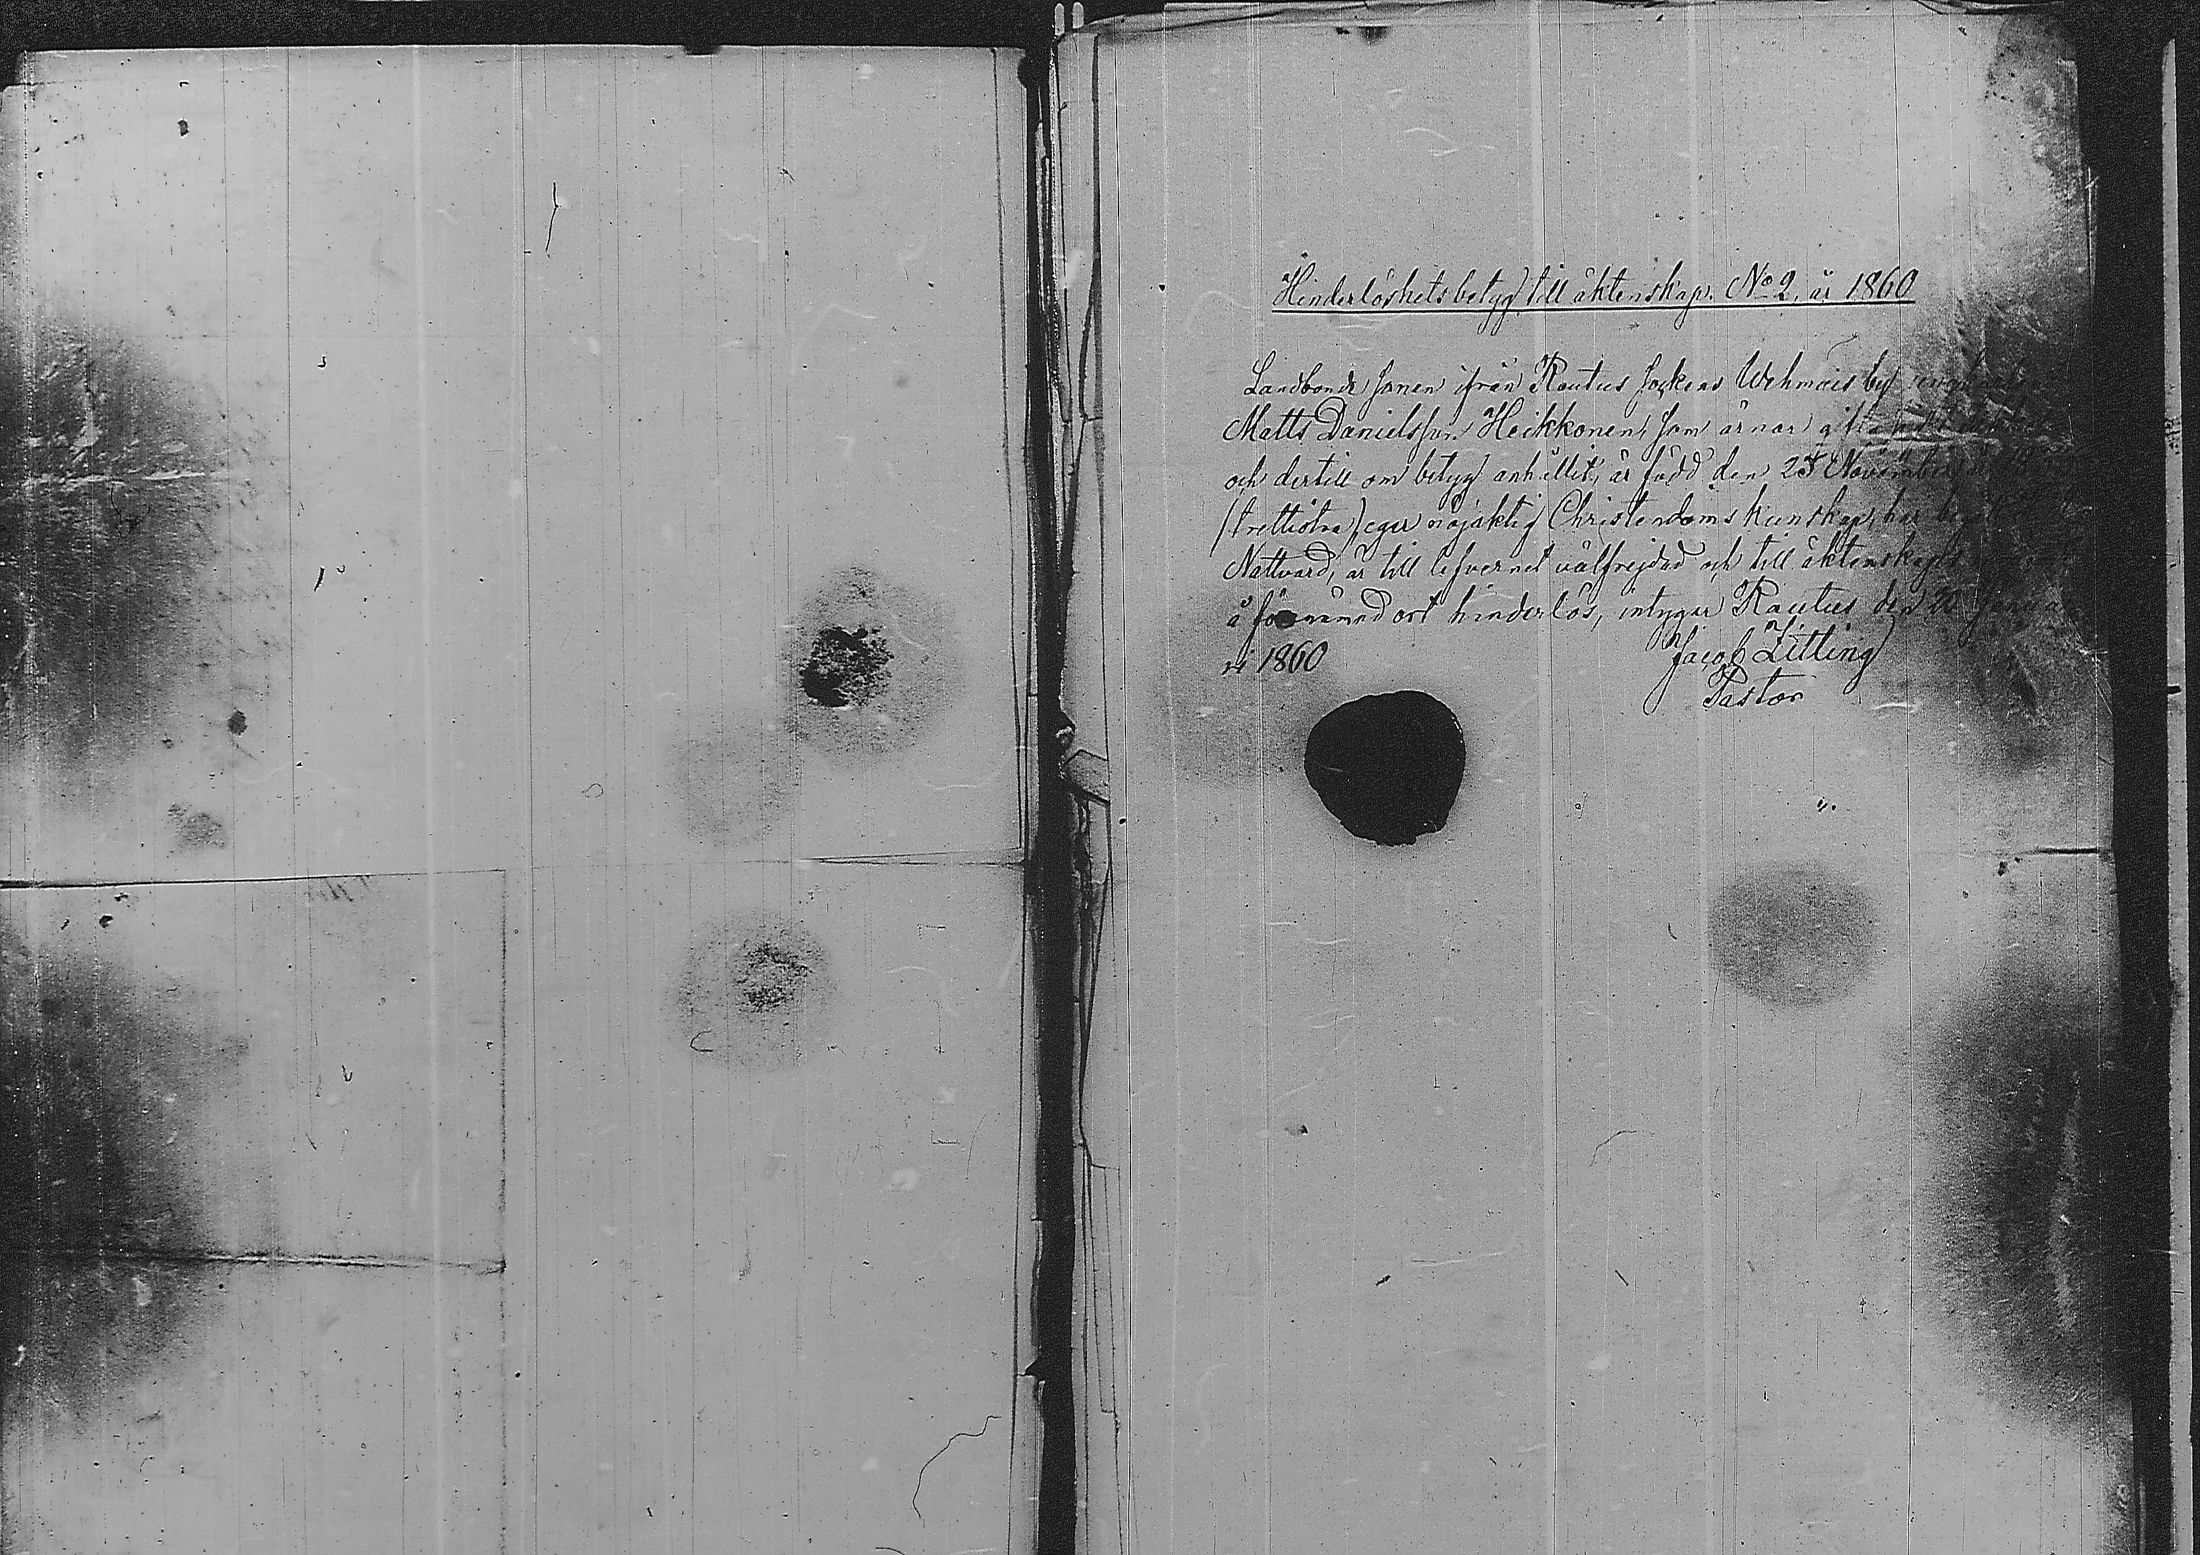 Hinderlöshetsbetyg till äktenskap. No 2, år 1860
Landbonde sonen ifrån Rautus Sockens Wehmais by
Matts Danielsson Heikkonen, som ärnar
och dertill om betyg anhållit, är född den 23 November
(trettiotva) eger nöjaktig Christendoms kunskap, har
Nattvard, är till lefvernet välfrejdad och till äktenskaps
å förenämnd ort hinderlös, intygar Rautus den 20 Janua
ri 1860
Jacob Zitting
Pastor